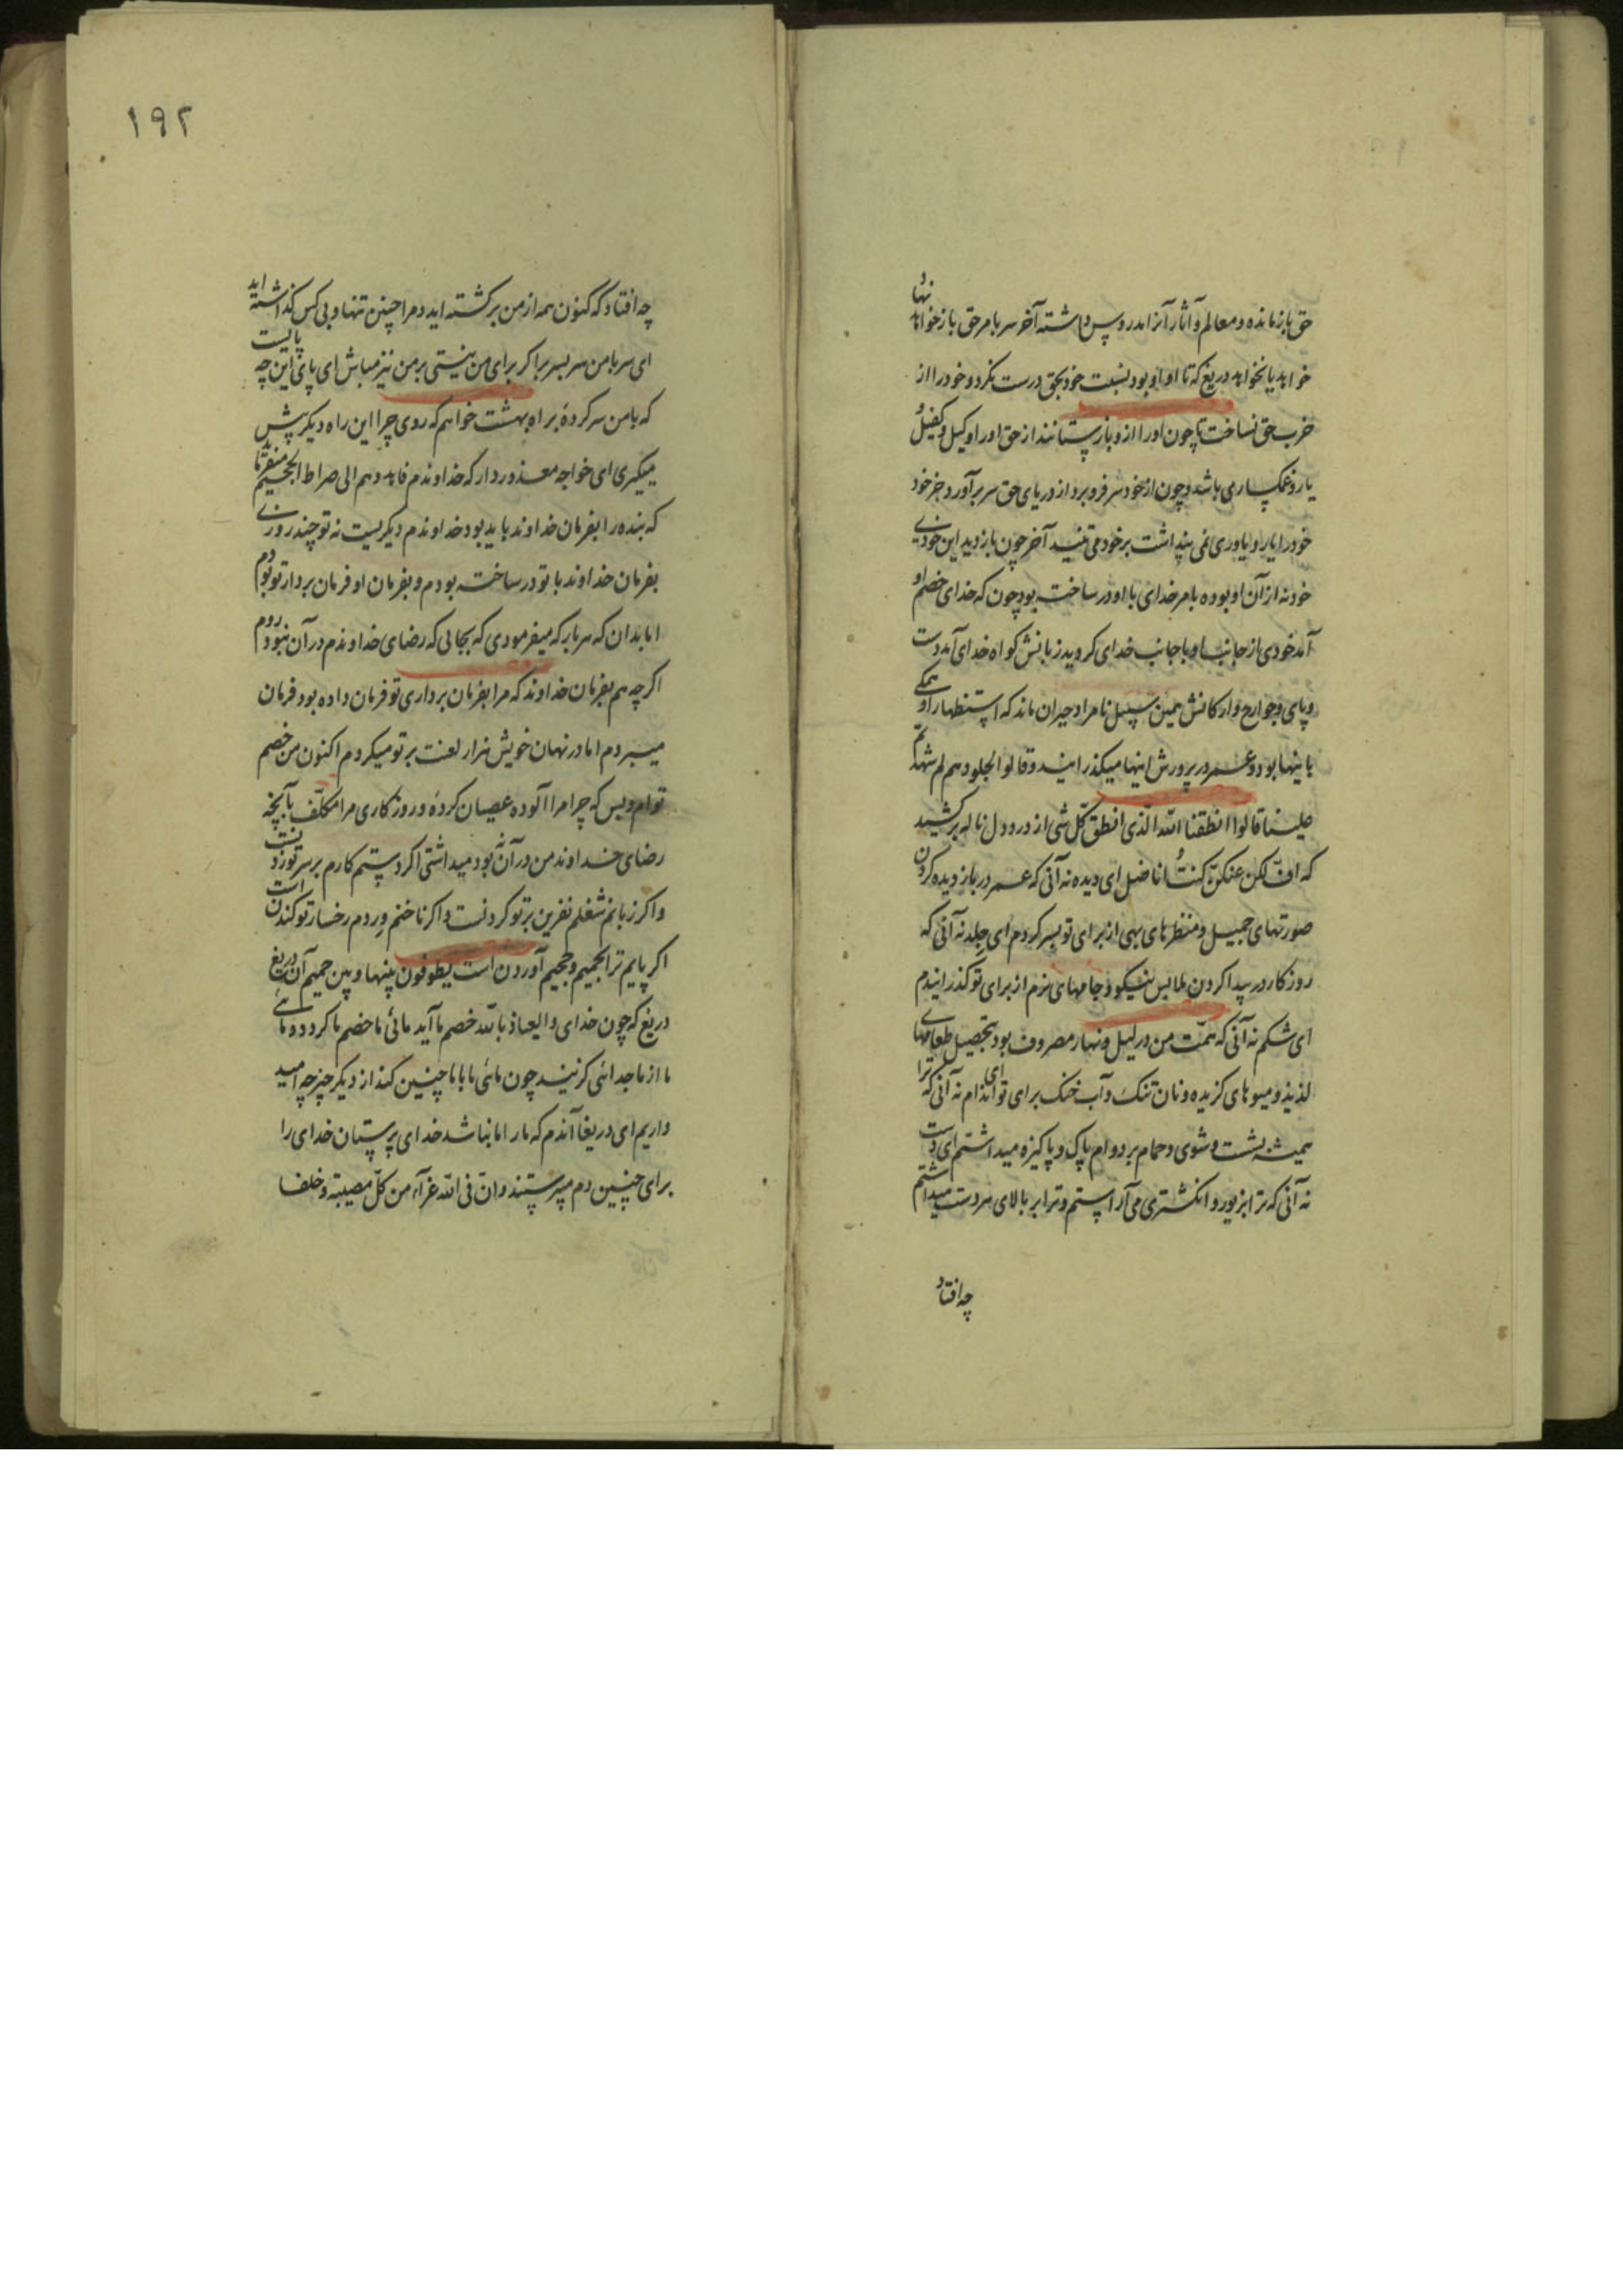 حق باز مانده و معالم و آثار آنرا بدر و پس داشته آخر سر با مر حق باز خواهد نهاد
خواهد یا نخواهد دریغ که تا او او بود نسبت خود بحق درست نکرد و خود را از
حزب حق نساخت تا چون او را از و باز ستانند از حق او را وکیل و کفیل
یار و غمگساری باشد و چون از خود سر فرو برد از دریای حق سر برآورد جز خود
خود را یار و یاوری نمی پنداشت بر خود می تنید آخر چون باز دید این خودی
خود نه از آن او بوده بامر خدای با او در ساخته بود چون که خدای خصم او
آمد خودی از جانب او با جانب خدای گروید زبانش گواه خدای آمد دست
و پای و جوارح و ارکانش همین سبیل نامراد حیران ماند که استظهار او همگی
باینها بود و عمر در پرورش اینها میگذرانید و قالوا لجلودهم لم شهدتم
علینا قالوا انطقنا الله الذی انطق کل شی از درد دل ناله برکشید
که افّ لکن عنکنّ کنتُ اناضل ای دیده نه آنی که عمر در باز دیده کردن
صورتهای جمیل و منظرهای بهی از برای تو بسر کردم ای جلد نه آنی که
روزکار در پیدا کردن ملابس نیکو و جامهای نرم از برای تو گذرانیدم
ای شکم نه آنی که همّت من در لیل و نهار مصروف بود بتحصیل طعامهای
لذیذ و میوهای گزیده و نان تنک و آب خنک برای تو ای اندام نه آنی که ترا
همیشه بشست و شوی و حمام بر دوام پاک و پاکیزه میداشتم ای دست
نه آنی که ترا بزیور و انگشتری می آراستم و ترا بر بالای هر دست میداشتم
چه افتاد
١٩٢
چه افتاد که کنون همه از من برگشته اید و مرا چنین تنها و بی کس گذاشته اید
ای سر با من سر بسر بر اگر برای من نیستی بر من نیز مباش ای پای این چه پالیست
که با من سر کردهٔ براه بهشت خواهم که روی چرا این راه دیگر پیش
میگیری ای خواجه معذور دار که خداوندم فاهدوهم الی صراط الجحیم
که بنده را بفرمان خداوند باید بود خداوندم دیگریست نه تو چند روزی
بفرمان خداوند با تو در ساخته بودم و بفرمان او فرمان بردار تو بودم
اما بدان که هر بار که میفرمودی که بجائی که رضای خداوندم در آن نبود روم
اگر چه هم بفرمان خداوند که مرا بفرمان برداری تو فرمان داده بود فرمان
میبردم اما در نهان خویش هزار لعنت بر تو میکردم اکنون من خصم
توام و بس که چرا مرا آلوده عصیان کردهٔ و روزکاری مرا مکلّف بآنچه
رضای خداوند من در آن نه بود میداشتی اگر دستم کارم بر سر تو زدنست
و اگر زبانم شغلم نفرین بر تو کردنست و اگر ناخنم وردم رخسار تو کندن است
اگر پایم ترا بحمیم و جحیم آوردن است یطوفون بینها و بین حمیم آن دریغ
دریغ که چون خدای والعیاذ بالله خصم ما آید مائی ما خصم ما گردد و مائی
ما از ما جدائی گزیند چون مائی ما با ما چنین کند از دیگر چیز چه امید
داریم ای دریغا آندم که ما را ما نباشد خدای پرستان خدای را
برای چنین دم میپرستند و ان فی الله عزآء من کلّ مصیبته و خلفا